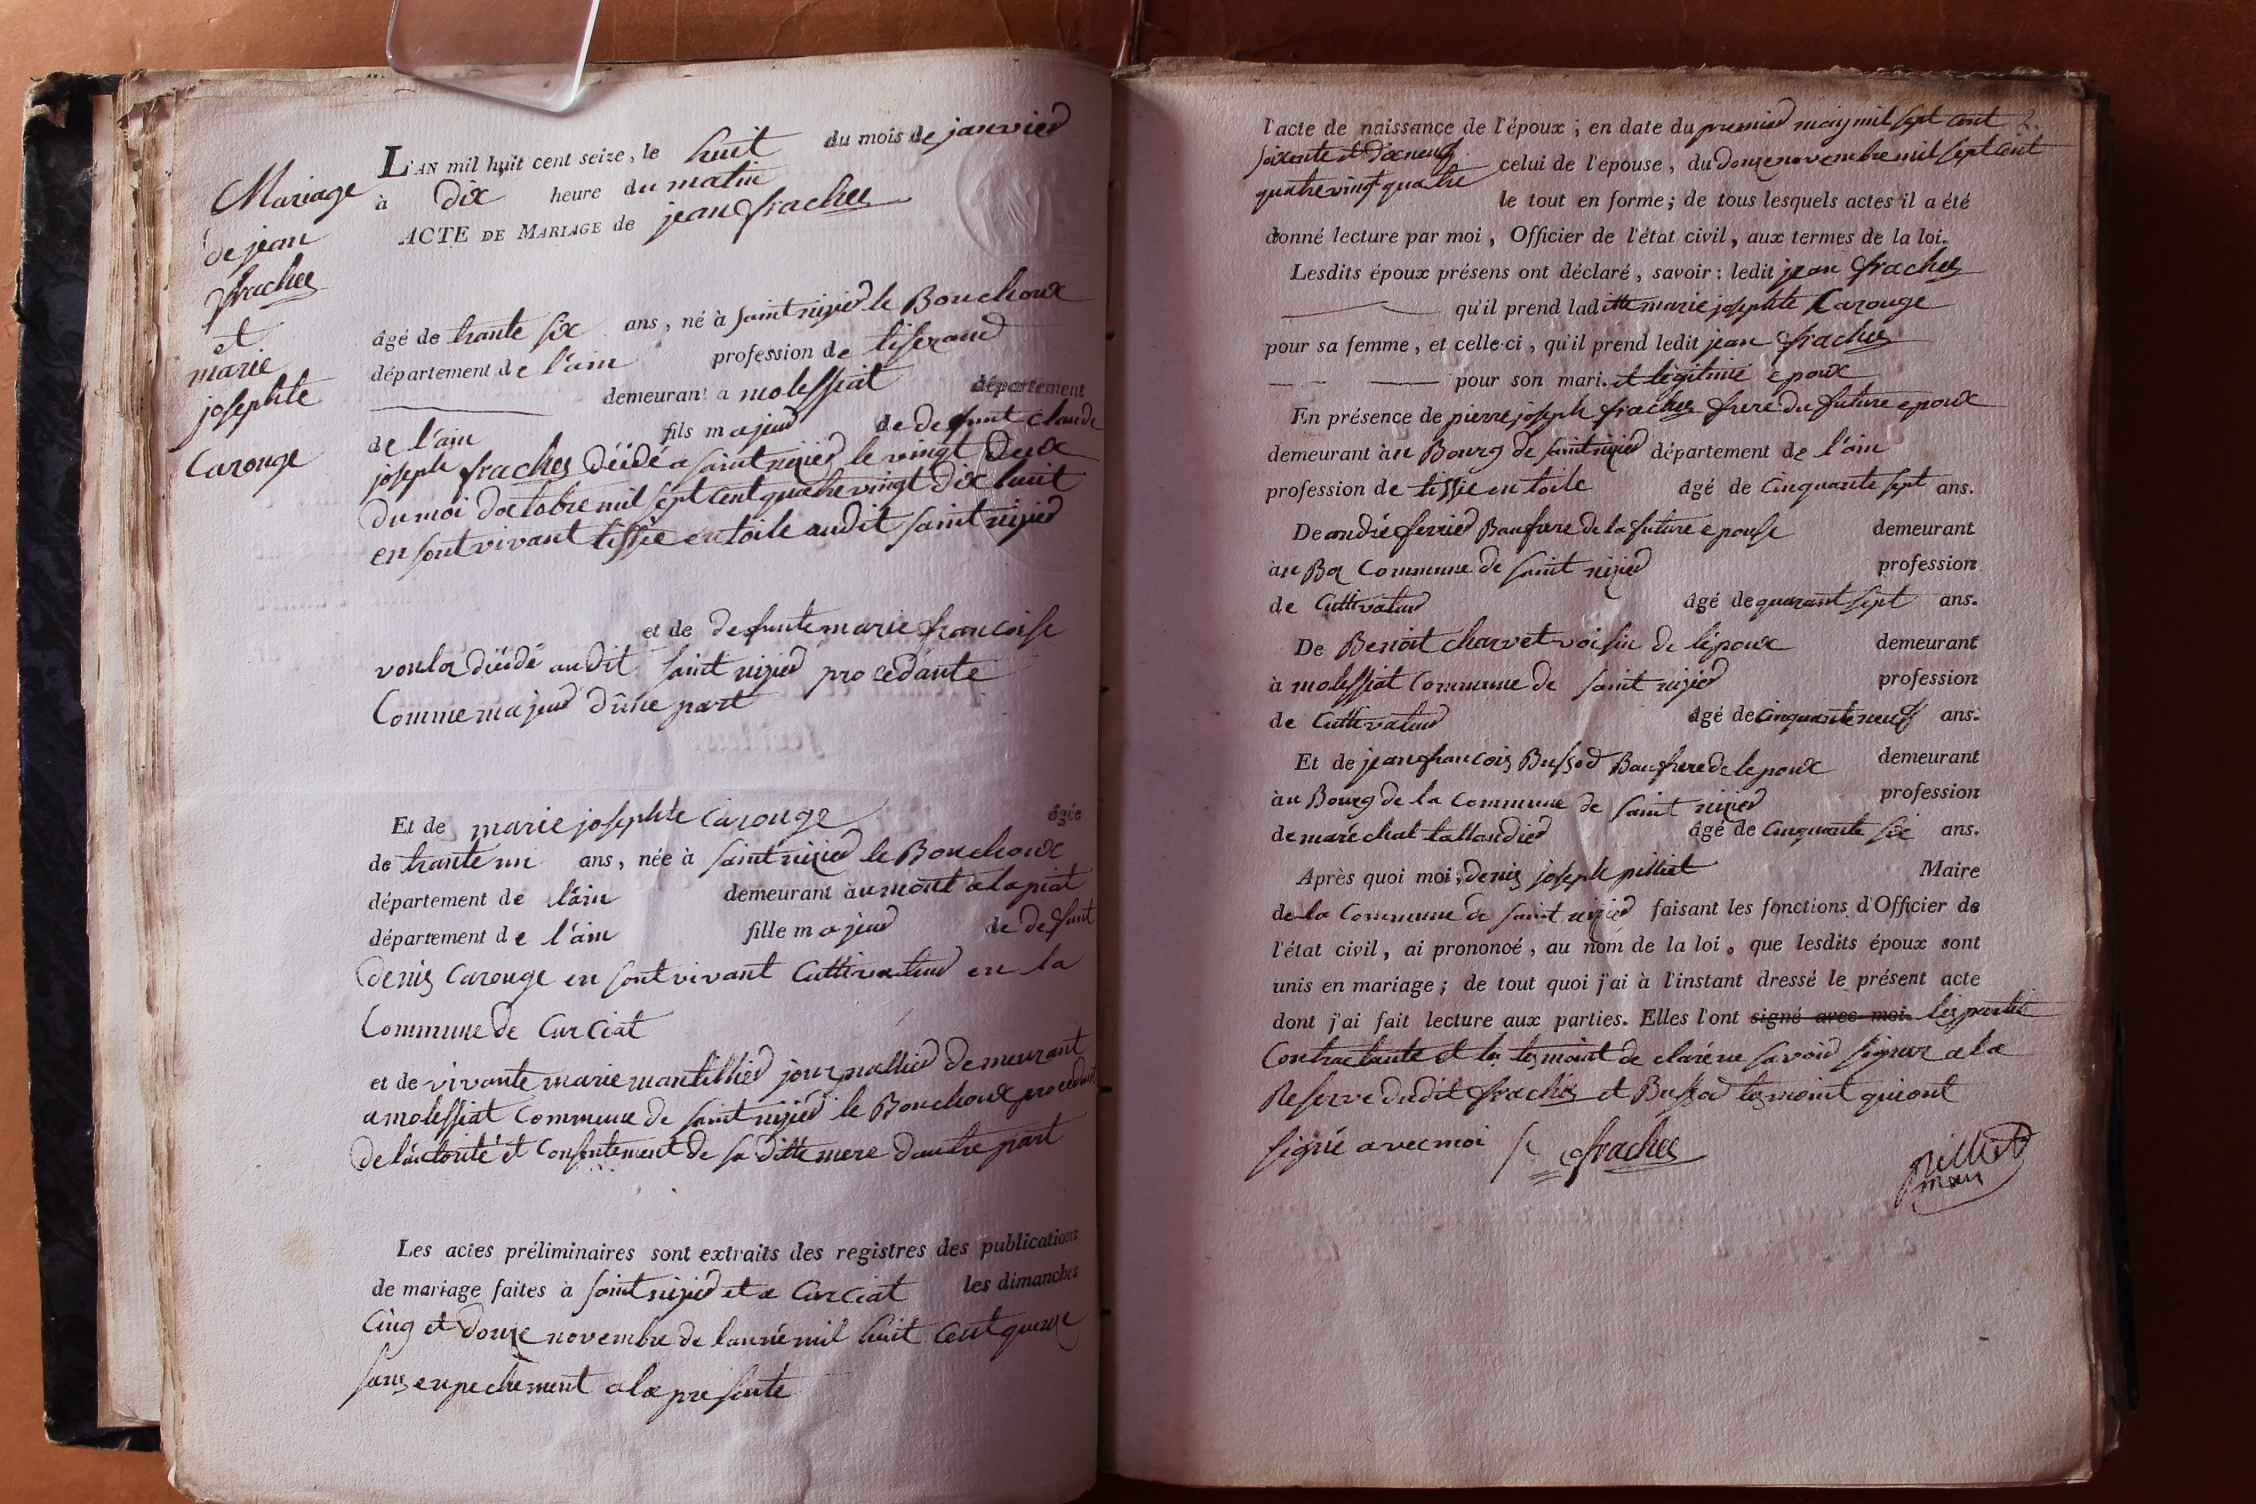 Mariage
de jean
frachet
et
marie
josephte
Carouge
L'AN mil huit cent seize, le huit du mois de janvier
à Dix heure du matin
ACTE DE MARIAGE de jean frachet
âgé de trante six ans, né à saint nizier le Bouchoux
département de l'ain profession de tiserand
demeurant a molessiat département
de l'ain fils majeur de defunt Claude
joseph frachet déédé a saint nizier le vingt deux
du moi doctobre mil sept cent quatre vingt dix huit
en sont vivant tissié en toile audit saint nizier
et de defunte marie francoise
déédé audit saint nizier procedante
Comme majeur d'une part
Et de marie josephte Carouge âgée
de trante un ans, née à saint nizier le Bouchoux
département de l'ain demeurant au mont a la piat
département de l'ain fille majeur de defunt
denis Carouge en sont vivant Cultivateur en la
Commune de Curciat
et de vivante marie mantillier journallier demeurant
a molessiat Commune de saint nizier le Bouchoux procedant
de l'autorité et Consentement de sa ditte mere dautre part
Les actes préliminaires sont extraits des registres des publications
de mariage faites à saint nizier et a Curciat les dimanches
Cinq et douze novembre de lanné mil huit Cent quinze
sans enpechement a la presente
2.
l'acte de naissance de l'époux; en date du premier may mil sept cent
soixente et dixneuf celui de l'épouse, du douze novembre mil sept cent
quatre vingt quatre le tout en forme; de tous lesquels actes il a été
donné lecture par moi, Officier de l'état civil, aux termes de la loi.
Lesdits époux présens ont déclaré, savoir: ledit jean frachet
qu'il prend laditte marie josephte Carouge
pour sa femme, et celle-ci, qu'il prend ledit jean frachet
pour son mari. et légitime epoux
En présence de pierre joseph frachet frere du future epoux
demeurant àu Bourg de saint nizier département de l'ain
profession de tissie en toile âgé de Cinquante sept ans.
De andré ferrier Baufrere de la future epouse demeurant
àu Commune de saint nizier profession
de Cultivateur âgé de quarant sept ans.
De Benoit charvet voisin de lépoux demeurant
à molessiat Commune de saint nizier profession
de Cultivateur âgé de Cinquante neuf ans.
Et de jean francois Bussod Baufrere de lepoux demeurant
àu Bourg de la Commune de saint nizier profession
de maréchal tallandier âgé de Cinquante six ans.
Après quoi moi, denis joseph pilliat Maire
de la Commune de saint nizier faisant les fonctions d'Officier de
l'état civil, ai prononcé, au nom de la loi, que lesdits époux sont
unis en mariage; de tout quoi j'ai à l'instant dressé le présent acte
dont j'ai fait lecture aux parties. Elles l'ont signé avec moi. les partie
Contractante et les temoint de claré ne savoir signer a la
Reserve dudit frachet et Bussod temoint qui ont
signé avec moi frachet
pilliat
maire